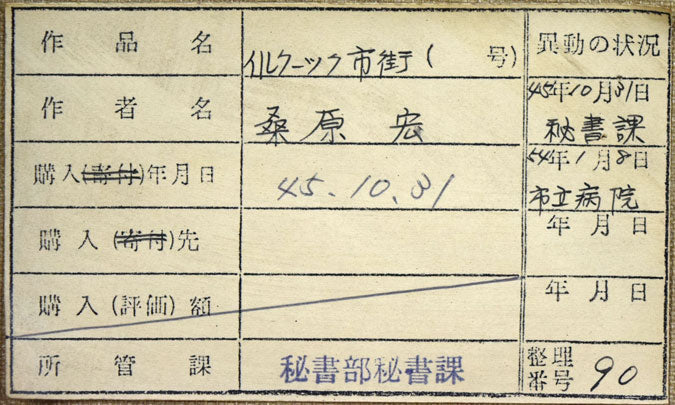 作品名 イルクーツク市街(　　号) 異動の状況
45年10月31日
作者名 桑原 宏 秘書課
54年1月8日
購入(寄付)年月日 45.10.31 市立病院
年 月 日
購入(寄付)先
購入(評価)額 年 月 日
所管課 秘書部秘書課 整理番号 90